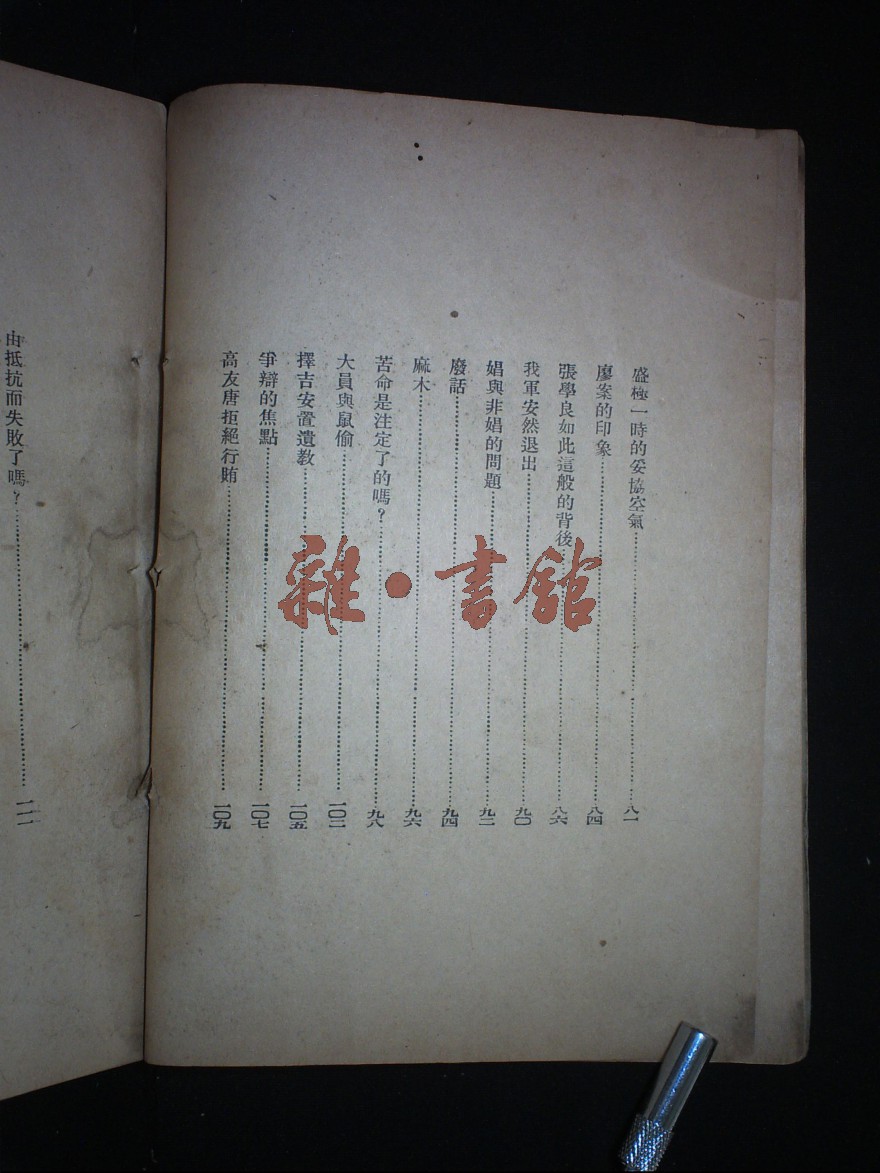 盛極一時的妥協空氣…………八一
廖案的印象…………八四
張學良如此這般的背後…………八六
我軍安然退出…………九〇
娼與非娼的問題…………九二
廢話…………九四
麻木…………九六
苦命是注定了的嗎？…………九八
大員與鼠偷…………一〇二
擇吉安置遺教…………一〇五
爭辯的焦點…………一〇七
高友唐拒絕行賄…………一〇九
由抵抗而失敗了嗎？…………一一一
雜·書館